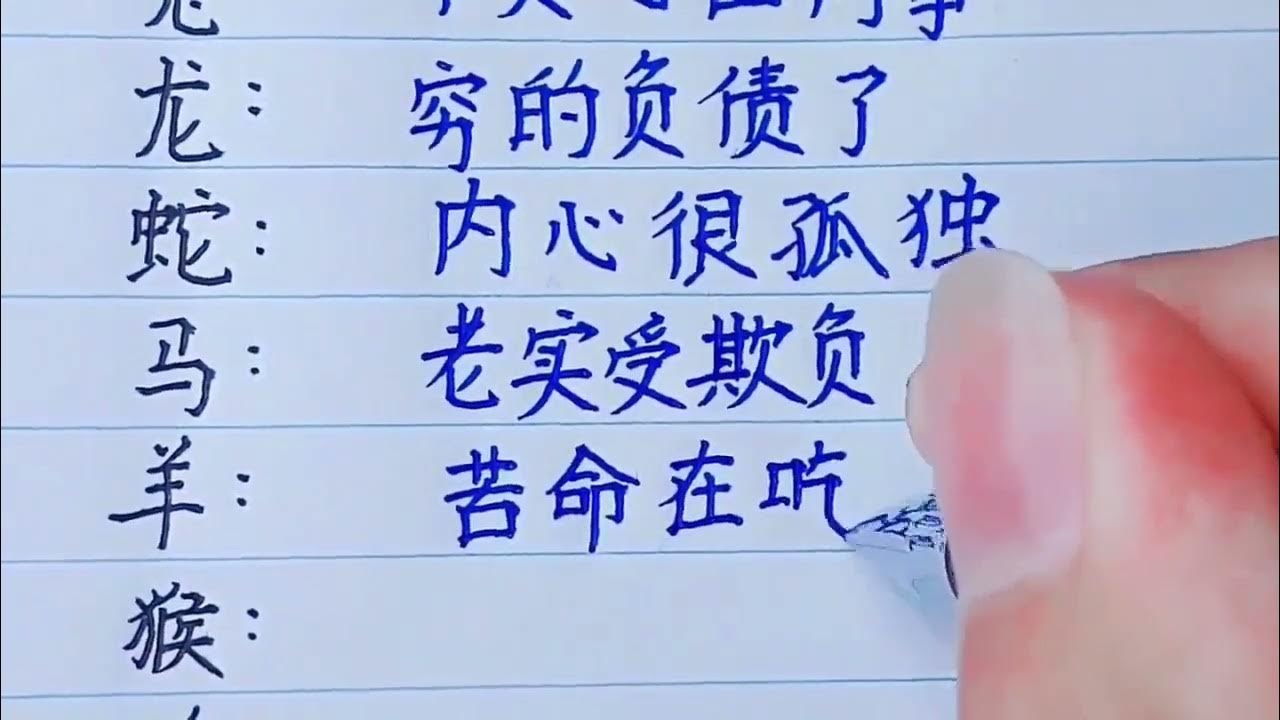 龙： 穷的负债了
蛇： 内心很孤独
马： 老实受欺负
羊： 苦命在吃
猴：